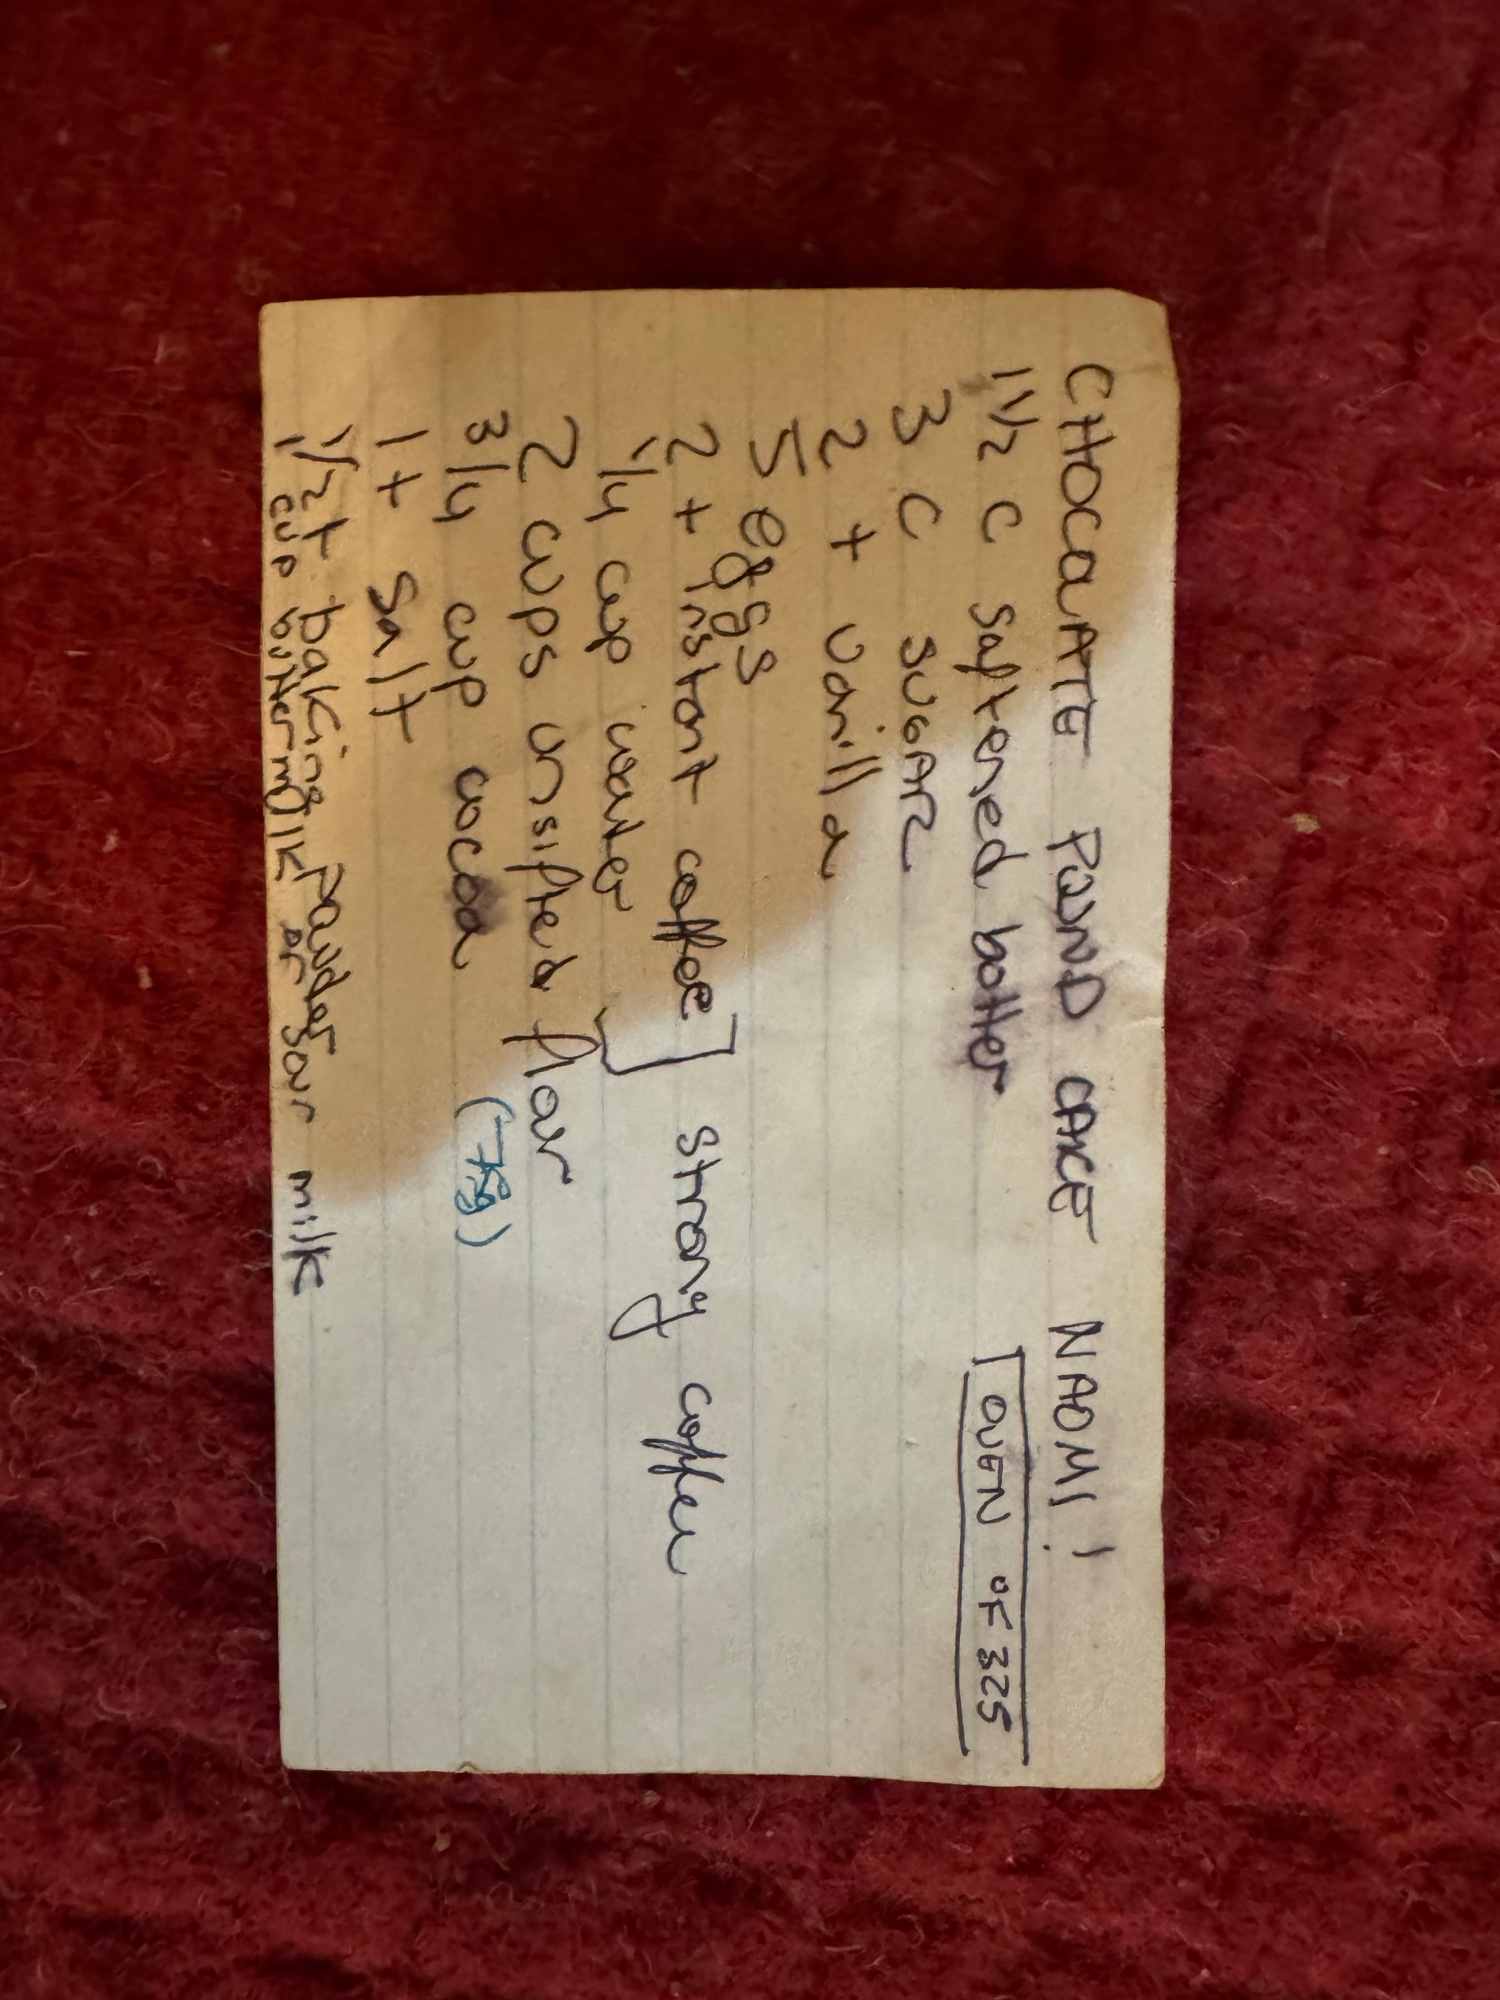 CHOCOLATE POUND CAKE NAOMI!
1 1/2 C softened butter
OVEN OF 325
3 C SUGAR
2 t vanilla
5 eggs
2 t instant coffee ] strong coffee
1/4 cup water
2 cups unsifted flour
3/4 cup cocoa
1 t Salt
1/2 t baking Powder
1 cup buttermilk or sour milk